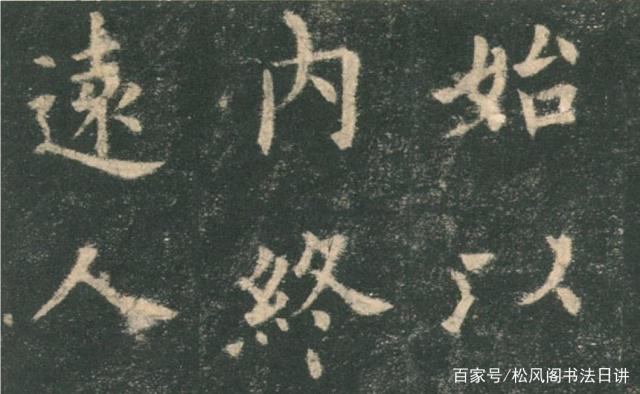 始以
内終
遠人
百家号/松风阁书法日讲